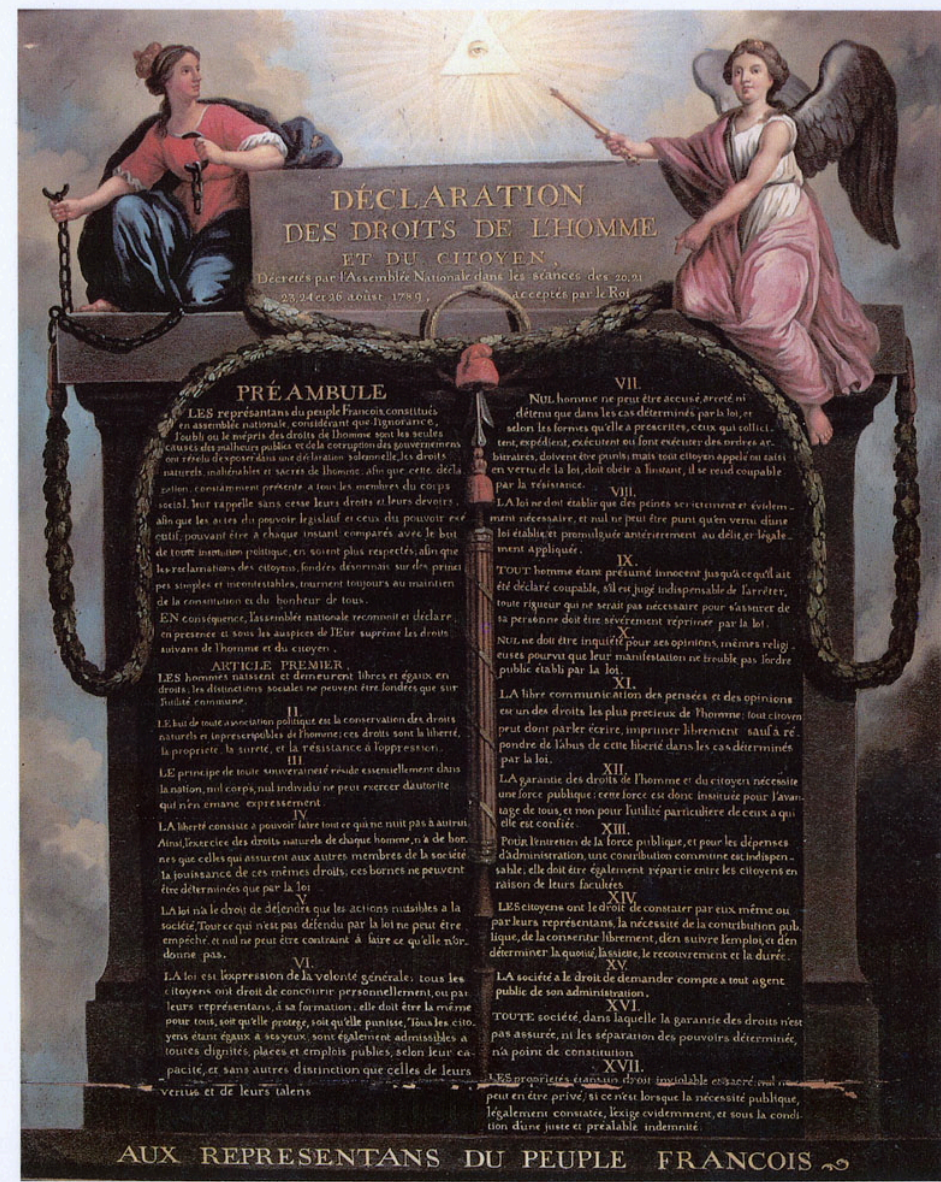 DÉCLARATION
DES DROITS DE L'HOMME
ET DU CITOYEN,
Décretés par l'Assemblée Nationale dans les séances des 20, 21
23, 24 et 26 aoûst 1789, acceptés par le Roi
PRÉAMBULE
LES représantans du peuple François, constitués
en assemblée nationale, considérant que l'ignorance,
l'oubli ou le mépris des droits de l'homme sont les seules
causes des malheurs publics et de la corruption des gouvernemens
ont résolu d'exposer dans une déclaration solemnelle, les droits
naturels, inaliénables et sacrés de l'homme; afin que cette décla
ration, constamment présente a tous les membres du corps
social, leur rappelle sans cesse leurs droits et leurs devoirs,
afin que les actes du pouvoir legislatif et ceux du pouvoir exé
cutif, pouvant être a chaque instant comparés avec le but
de toute institution politique, en soient plus respectés; afin que
les reclamations des citoyens, fondées désormais sur des princi
pes simples et incontestables, tournent toujours au maintien
de la constitution et du bonheur de tous.
EN conséquence, l'assemblée nationale reconnoit et déclare,
en presence et sous les auspices de l'Etre suprême les droits
suivans de l'homme et du citoyen.
ARTICLE PREMIER,
LES hommes naissent et demeurent libres et égaux en
droits; les distinctions sociales ne peuvent être fondées que sur
l'utilité commune.
II.
LE but de toute association politique est la conservation des droits
naturels et inprescriptibles de l'homme; ces droits sont la liberté,
la propriete, la sureté, et la résistance à l'oppression.
III.
LE principe de toute souveraineté réside essentiellement dans
la nation, nul corps, nul individu ne peut exercer d'autorité
qui n'en emane expressement.
IV.
LA liberté consiste a pouvoir faire tout ce qui ne nuit pas à autrui.
Ainsi, l'exercice des droits naturels de chaque homme, n'a de bor-
nes que celles qui assurent aux autres membres de la société
la jouissance de ces mêmes droits; ces bornes ne peuvent
être déterminées que par la loi
V.
LA loi n'a le droit de défendre que les actions nuisibles a la
société, Tout ce qui n'est pas défendu par la loi ne peut être
empêché, et nul ne peut être contraint à faire ce qu'elle n'or-
donne pas.
VI.
LA loi est l'expression de la volonté générale; tous les
citoyens ont droit de concourir personnellement, ou par
leurs représentans, à sa formation; elle doit être la même
pour tous, soit qu'elle protege, soit qu'elle punisse, Tous les cito-
yens étant égaux à ses yeux, sont également admissibles a
toutes dignités, places et emplois publics, selon leur ca-
pacité, et sans autres distinction que celles de leurs
vertus et de leurs talens
VII.
NUL homme ne peut être accusé, arreté ni
détenu que dans les cas déterminés par la loi, et
selon les formes qu'elle a prescrites, ceux qui sollici-
tent, expédient, exécutent ou font exécuter des ordres ar-
bitraires, doivent être punis; mais tout citoyen appelé ou saisi
en vertu de la loi, doit obéir a l'instant, il se rend coupable
par la résistance.
VIII.
LA loi ne doit établir que des peines strictement et évidem-
ment nécessaire, et nul ne peut être puni qu'en vertu d'une
loi établie et promulguée antérierement au délit, et légale-
ment appliquée.
IX.
TOUT homme étant présumé innocent jusqu'a ce qu'il ait
été déclaré coupable, s'il est jugé indispensable de l'arrêter,
toute rigueur qui ne serait pas nécessaire pour s'assurer de
sa personne doit être sévèrement réprimée par la loi.
X.
NUL ne doit être inquiété pour ses opinions, mêmes religi-
euses pourvu que leur manifestation ne trouble pas l'ordre
public établi par la loi.
XI.
LA libre communication des pensées et des opinions
est un des droits les plus precieux de l'homme; tout citoyen
peut dont parler écrire, imprimer librement sauf à ré-
pondre de l'abus de cette liberté dans les cas déterminés
par la loi.
XII.
LA garantie des droits de l'homme et du citoyen nécessite
une force publique; cette force est donc instituée pour l'avan-
tage de tous, et non pour l'utilité particuliere de ceux a qui
elle est confiée.
XIII.
POUR l'entretien de la force publique, et pour les dépenses
d'administration, une contribution commune est indispen-
sable; elle doit être également répartie entre les citoyens en
raison de leurs facultées
XIV.
LES citoyens ont le droit de constater par eux même ou
par leurs représentans, la nécessité de la contribution pub-
lique, de la consentir librement, d'en suivre l'emploi, et d'en
déterminer la quotité, l'assiette, le recouvrement et la durée.
XV.
LA société a le droit de demander compte a tout agent
public de son administration.
XVI.
TOUTE société, dans laquelle la garantie des droits n'est
pas assurée, ni les séparation des pouvoirs déterminée,
n'a point de constitution
XVII.
LES proprietés étant un droit inviolable et sacré, nul ne
peut en être privé, si ce n'est lorsque la nécessité publique,
légalement constatée, l'exige evidemment, et sous la condi-
tion d'une juste et préalable indemnité.
AUX REPRESENTANS DU PEUPLE FRANCOIS